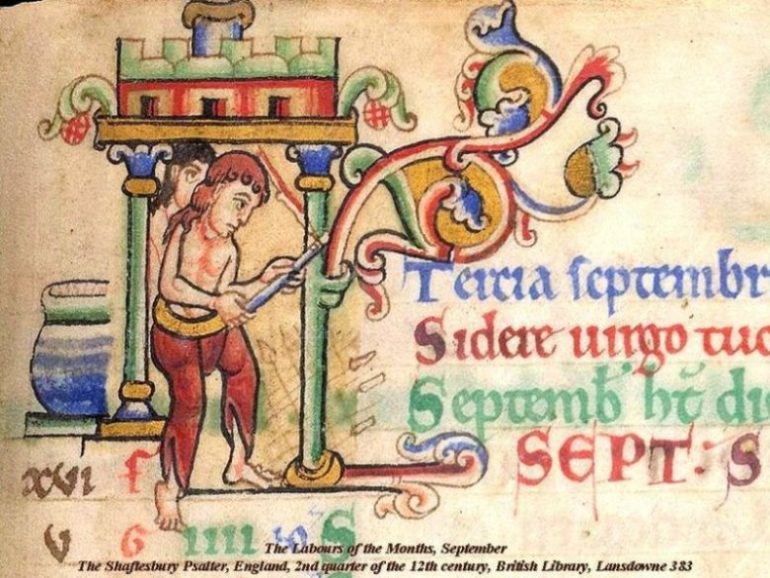 Tercia septembr
Sidere uirgo tuo
Septemb̄ ht̄ di
SEPT: S
xvi f
v G IIII S
The Labours of the Months, September
The Shaftesbury Psalter, England, 2nd quarter of the 12th century, British Library, Lansdowne 383